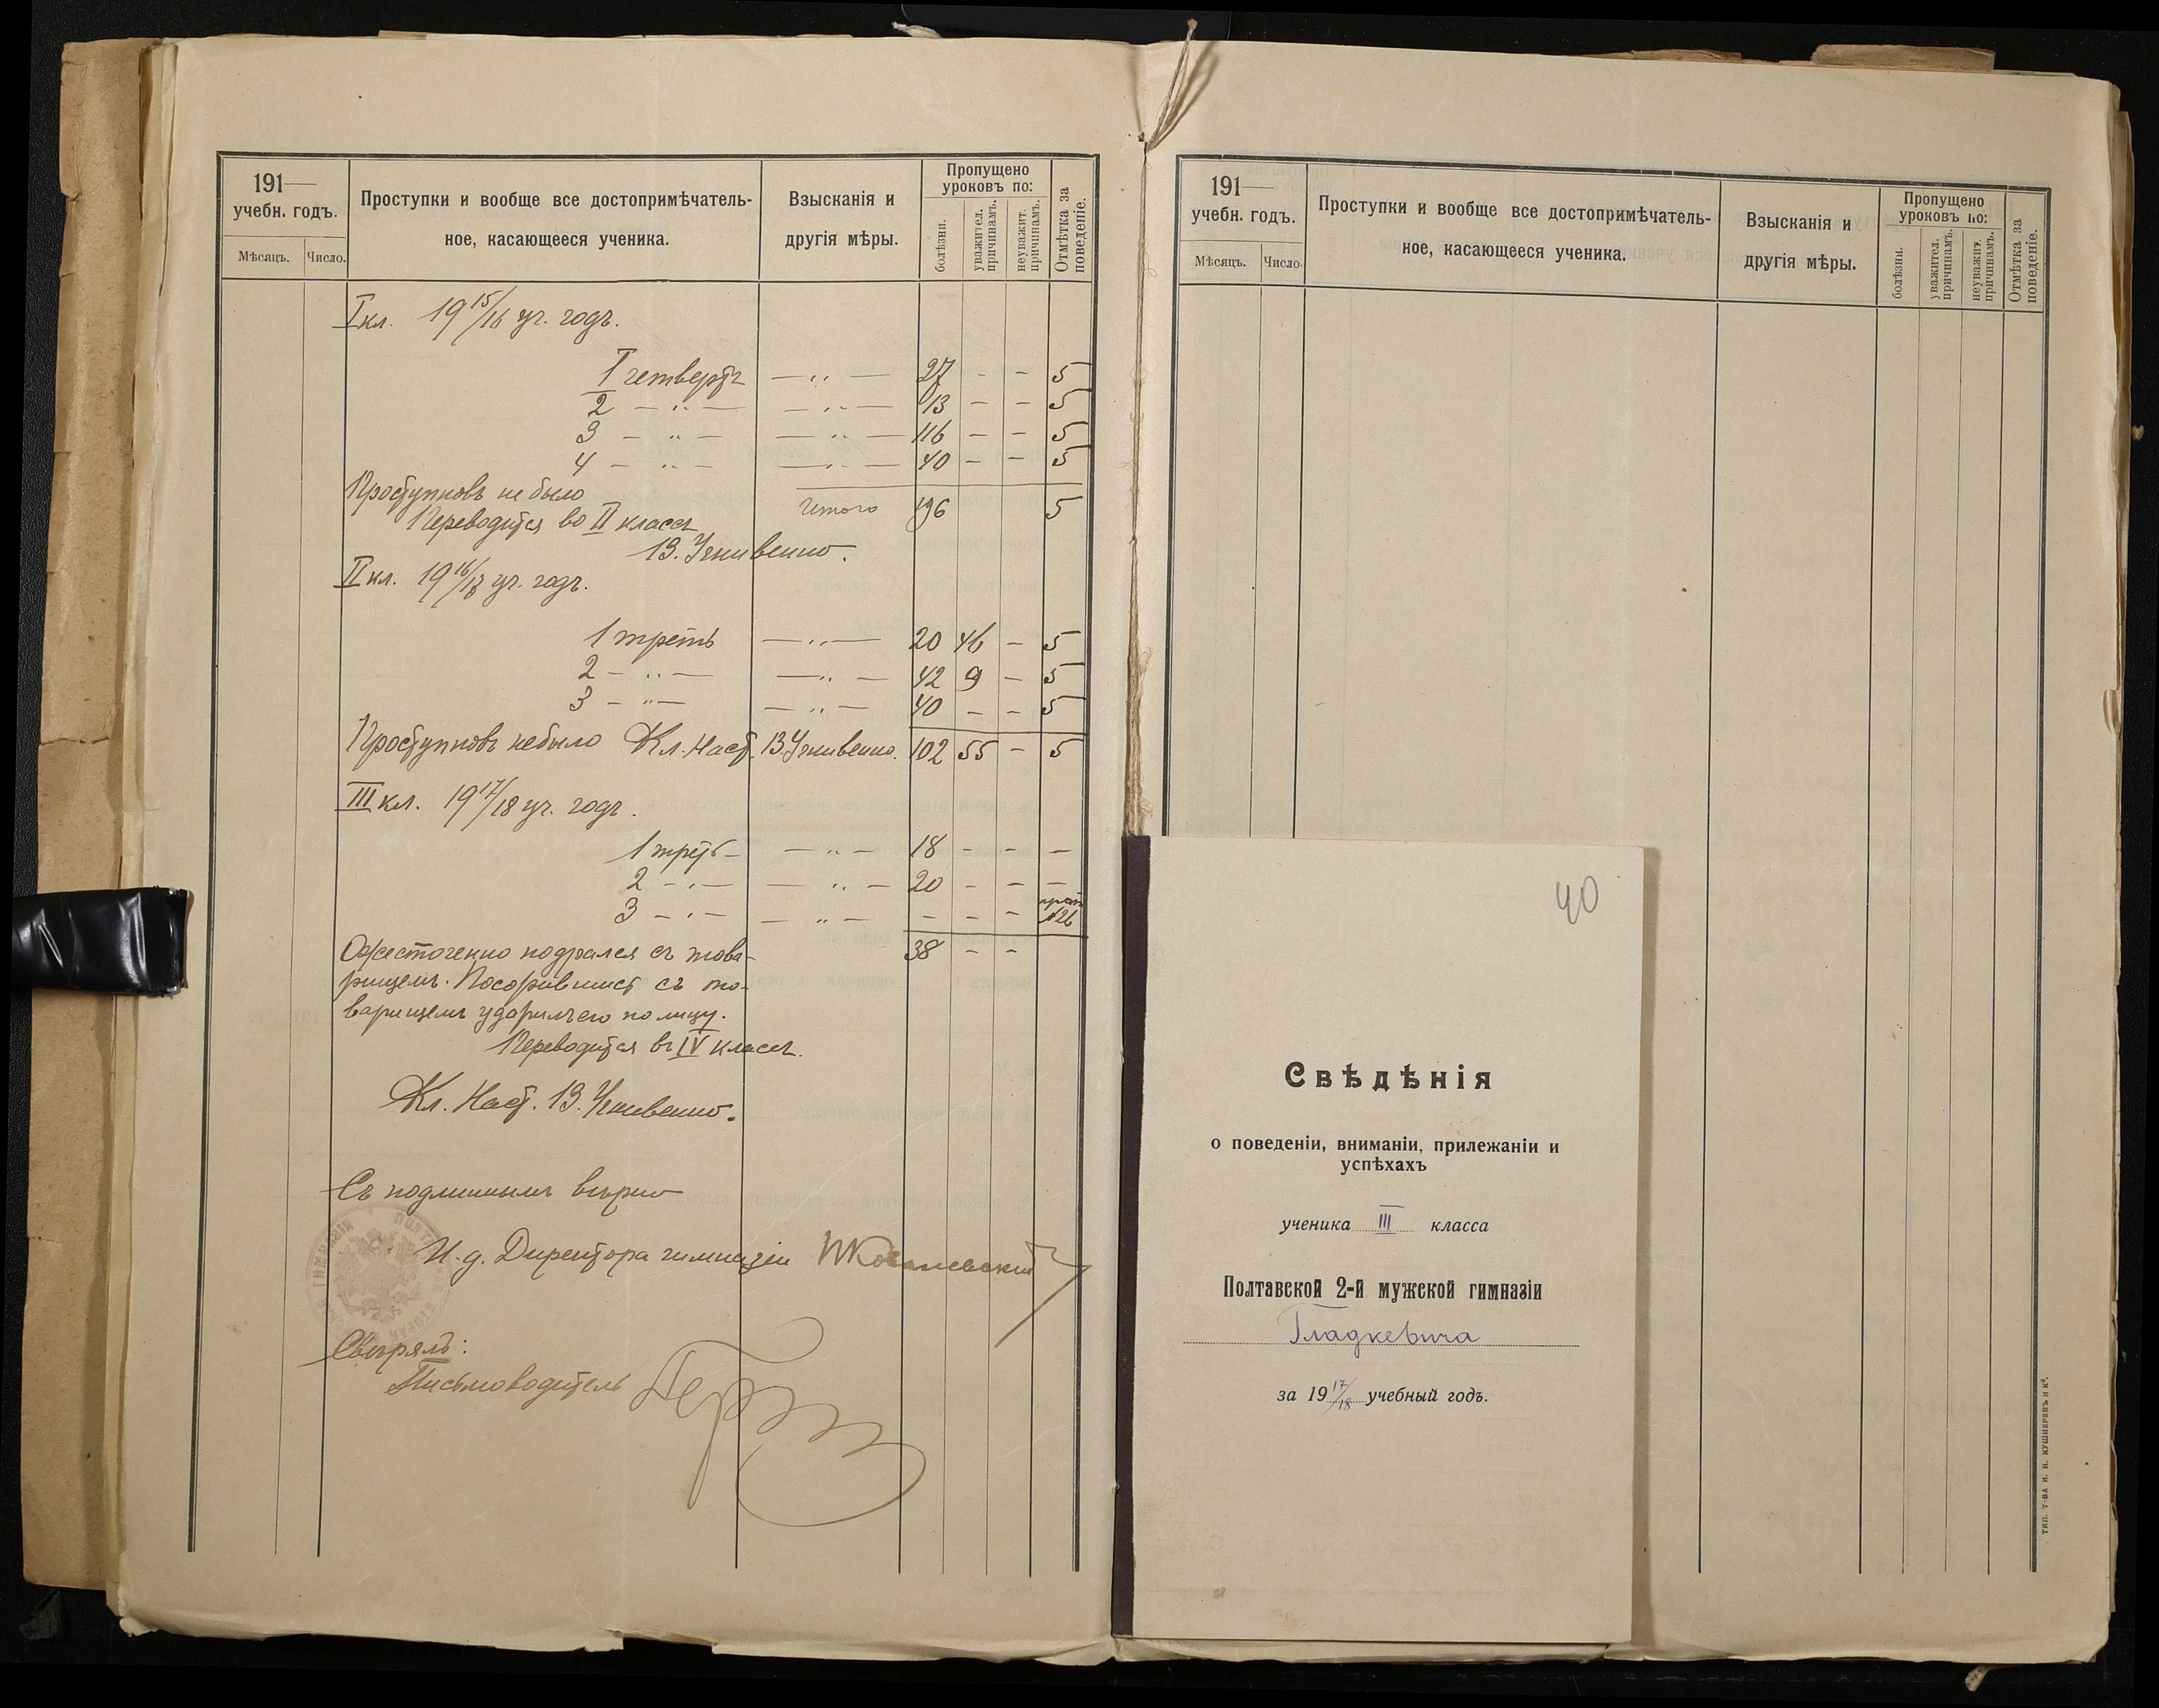 191—
учебн. годъ.
Мѣсяцъ. Число.
Проступки и вообще все достопримѣчатель-
ное, касающееся ученика.
Взысканія и
другія мѣры.
Пропущено
уроковъ по:
болѣзни.
уважител. причинамъ.
неуважит. причинамъ.
Отмѣтка за поведеніе.
I кл. 19 15/16 уч. годъ.
I четверть — " — 27 - - 5
2 — " — — " — 13 — — 5
3 — " — — " — 116 — — 5
4 — " — — " — 40 — — 5
Проступковъ не было
Итого 196 5
Переводится во II классъ
II кл. 19 16/17 уч. годъ.
1 треть — " — 20 46 — 5
2 — " — — " — 42 9 — 5
3 — " — — " — 40 — — 5
Проступковъ не было Кл. Наст. 102 55 — 5
III кл. 19 17/18 уч. годъ.
1 треть — " — 18 — — —
2 — " — — " — 20 — — —
3 — " — — " — — — — №26
Ожесточенно подрался съ това-
рищемъ. Поссорившись съ то-
варищемъ ударилъ его по лицу.
38 — —
Переводится въ IV классъ.
Кл. Наст.
Съ подлиннымъ вѣрно
И. д. Директора гимназіи Ковалевскій
Свѣрялъ:
Письмоводитель
191—
учебн. годъ.
Мѣсяцъ. Число.
Проступки и вообще все достопримѣчатель-
ное, касающееся ученика.
Взысканія и
другія мѣры.
Пропущено
уроковъ по:
болѣзни.
уважител. причинамъ.
неуважит. причинамъ.
Отмѣтка за поведеніе.
40
Свѣдѣнія
о поведеніи, вниманіи, прилежаніи и
успѣхахъ
ученика III класса
Полтавской 2-й мужской гимназіи
Гладкевича
за 19 17/18 учебный годъ.
ТИП. Т-ВА И. Н. КУШНЕРЕВЪ и Ко.